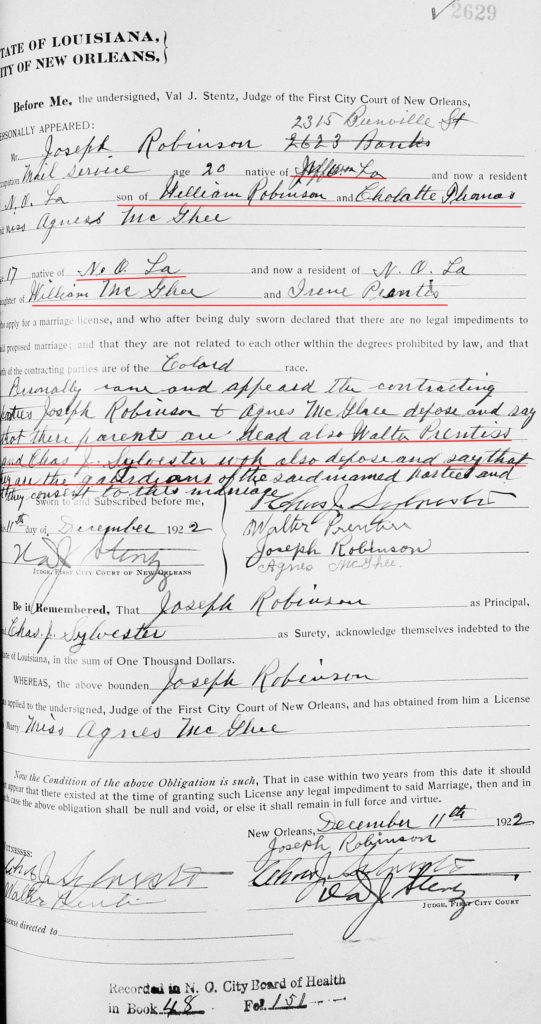 ✓ 2629
TATE OF LOUISIANA,
ITY OF NEW ORLEANS,
Before Me, the undersigned, Val J. Stentz, Judge of the First City Court of New Orleans,
2315 Bienville St
ERSONALLY APPEARED:
Mr. Joseph Robinson 2623 Banks
ccupation Mail Service age 20 native of Jefferson La and now a resident
N.O. La son of William Robinson and Cholatte Thomas
nd Miss Agness Mc Ghee
17 native of N.O. La and now a resident of N.O. La
aughter of William Mc Ghee and Irene Prentis
who apply for a marriage license, and who after being duly sworn declared that there are no legal impediments to
said proposed marriage; and that they are not related to each other within the degrees prohibited by law, and that
th of the contracting parties are of the Colard race.
Personally came and appeard the contracting
parties Joseph Robinson & Agnes Mc Ghee depose and say
that there parents are dead also Walter Prentiss
and Chas J. Sylvester woh also depose and say that
they are the gaurdians of the said named parties and
they consent to this marriage
Sworn to and Subscribed before me, Chas J Sylvester
this 11th day of December 1922 Walter Prentiss
Val J Stentz Joseph Robinson
JUDGE, FIRST CITY COURT OF NEW ORLEANS Agnes McGhee.
Be it Remembered, That Joseph Robinson as Principal,
and Chas. J. Sylvester as Surety, acknowledge themselves indebted to the
tate of Louisiana, in the sum of One Thousand Dollars.
WHEREAS, the above bounden Joseph Robinson
has applied to the undersigned, Judge of the First City Court of New Orleans, and has obtained from him a License
to Marry Miss Agnes Mc Ghee
Now the Condition of the above Obligation is such, That in case within two years from this date it should
not appear that there existed at the time of granting such License any legal impediment to said Marriage, then and in
such case the above obligation shall be null and void, or else it shall remain in full force and virtue.
New Orleans, December 11th 1922
WITNESSES: Joseph Robinson
Chas J Sylvester Chas J Sylvester
Walter Prentiss Val J Stentz
JUDGE, FIRST CITY COURT
icense directed to
Recorded in N. O. City Board of Health
in Book 48 Fol 151